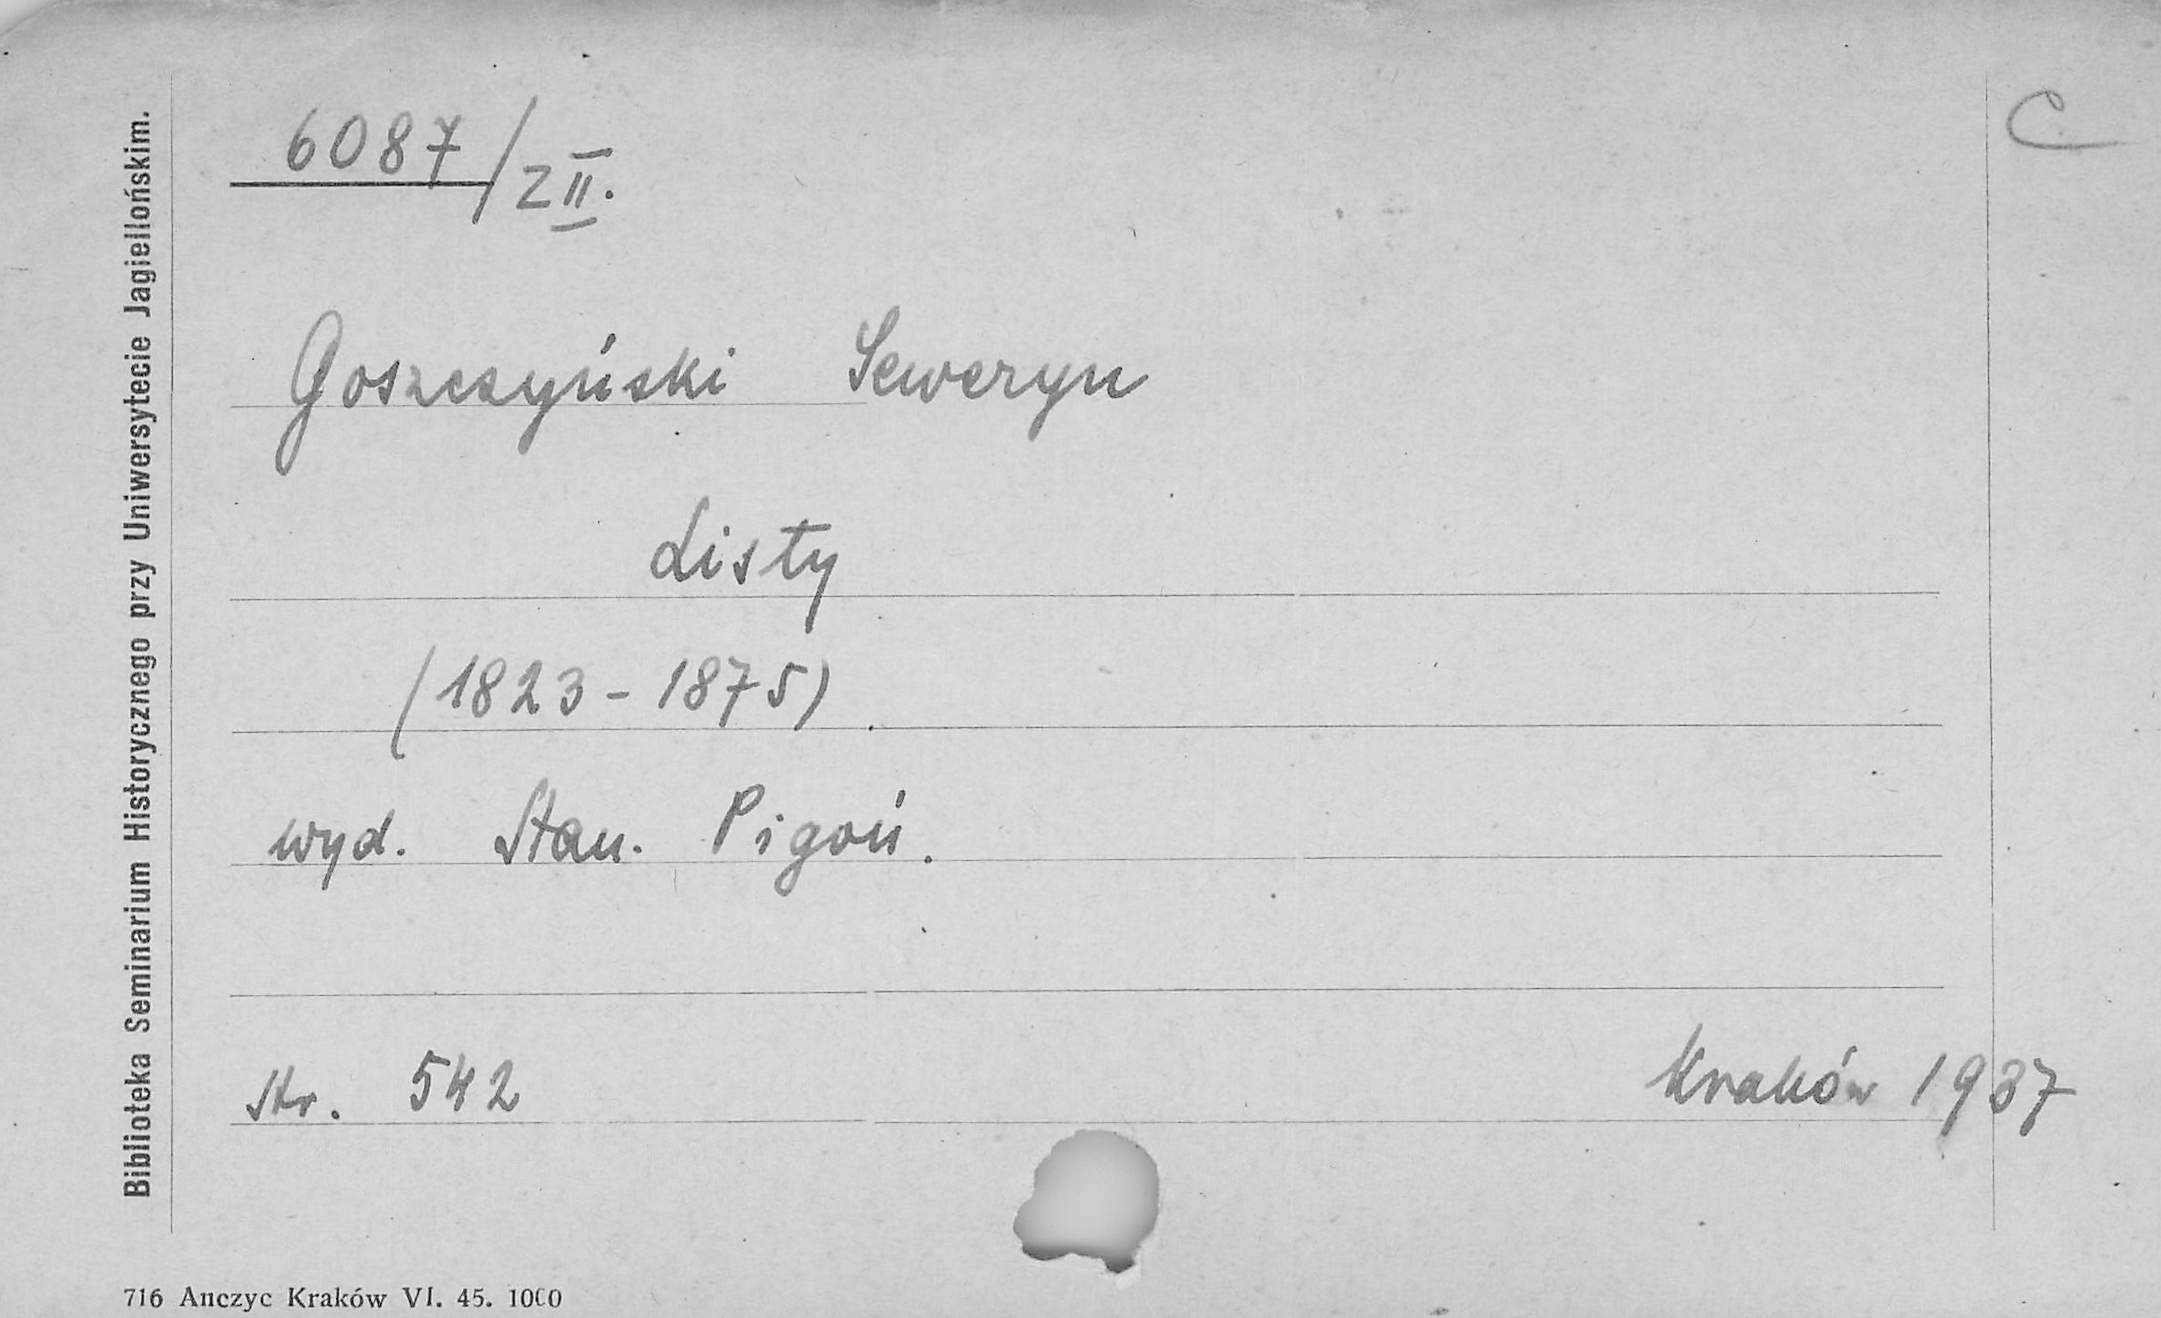 6087/ZII.
C
Goszczyński Seweryn
Listy
(1823-1875)
wyd. Stan. Pigoń.
str. 542
Kraków 1937
Biblioteka Seminarium Historycznego przy Uniwersytecie Jagiellońskim.
716 Anczyc Kraków VI. 45. 1000